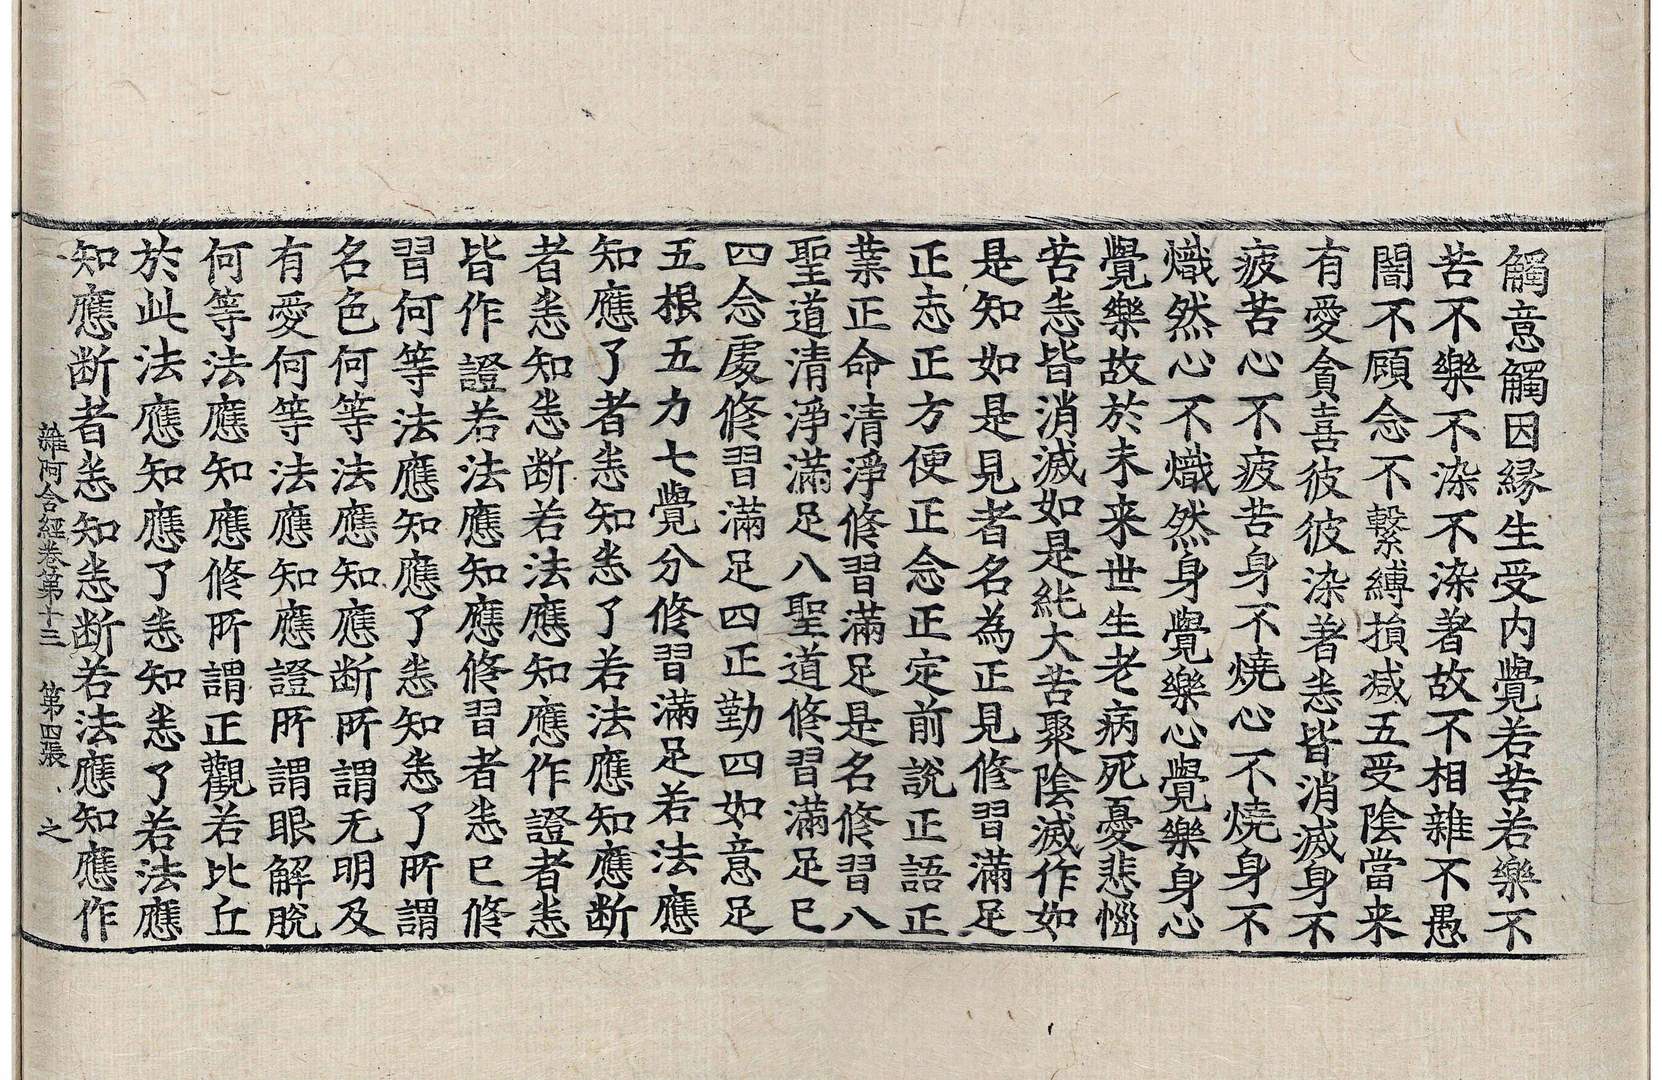 觸意觸因緣生受内覺若苦若樂不
苦不樂不染不染著故不相雜不愚
闇不顧念不繫縛損减五受陰當来
有愛貪喜彼彼染著悉皆消滅身不
疲苦心不疲苦身不燒心不燒身不
熾然心不熾然身覺樂心覺樂身心
覺樂故於未来世生老病死憂悲惱
苦悉皆消滅如是純大苦聚陰滅作如
是知如是見者名為正見修習滿足
正志正方便正念正定前說正語正
業正命清淨修習滿足是名修習八
聖道清淨滿足八聖道修習滿足已
四念處修習滿足四正勤四如意足
五根五力七覺分修習滿足若法應
知應了者悉知悉了若法應知應断
者悉知悉断若法應知應作證者悉
皆作證若法應知應修習者悉已修
習何等法應知應了悉知悉了所謂
名色何等法應知應断所謂无明及
有愛何等法應知應證所謂眼解脫
何等法應知應修所謂正觀若比丘
於此法應知應了悉知悉了若法應
知應断者悉知悉断若法應知應作
雜阿含經卷第十三 第四張 之